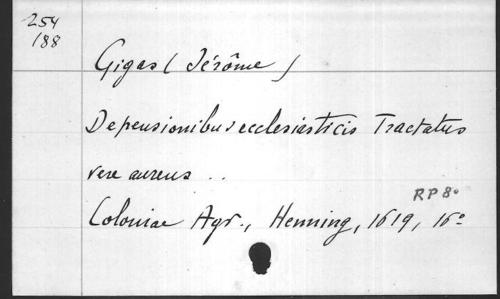 254
188
Gigas (Jérôme)
De pensionibus ecclesiasticis Tractatus
vere aureus ..
RP 8°
Coloniae Agr., Henning, 1619, 16°